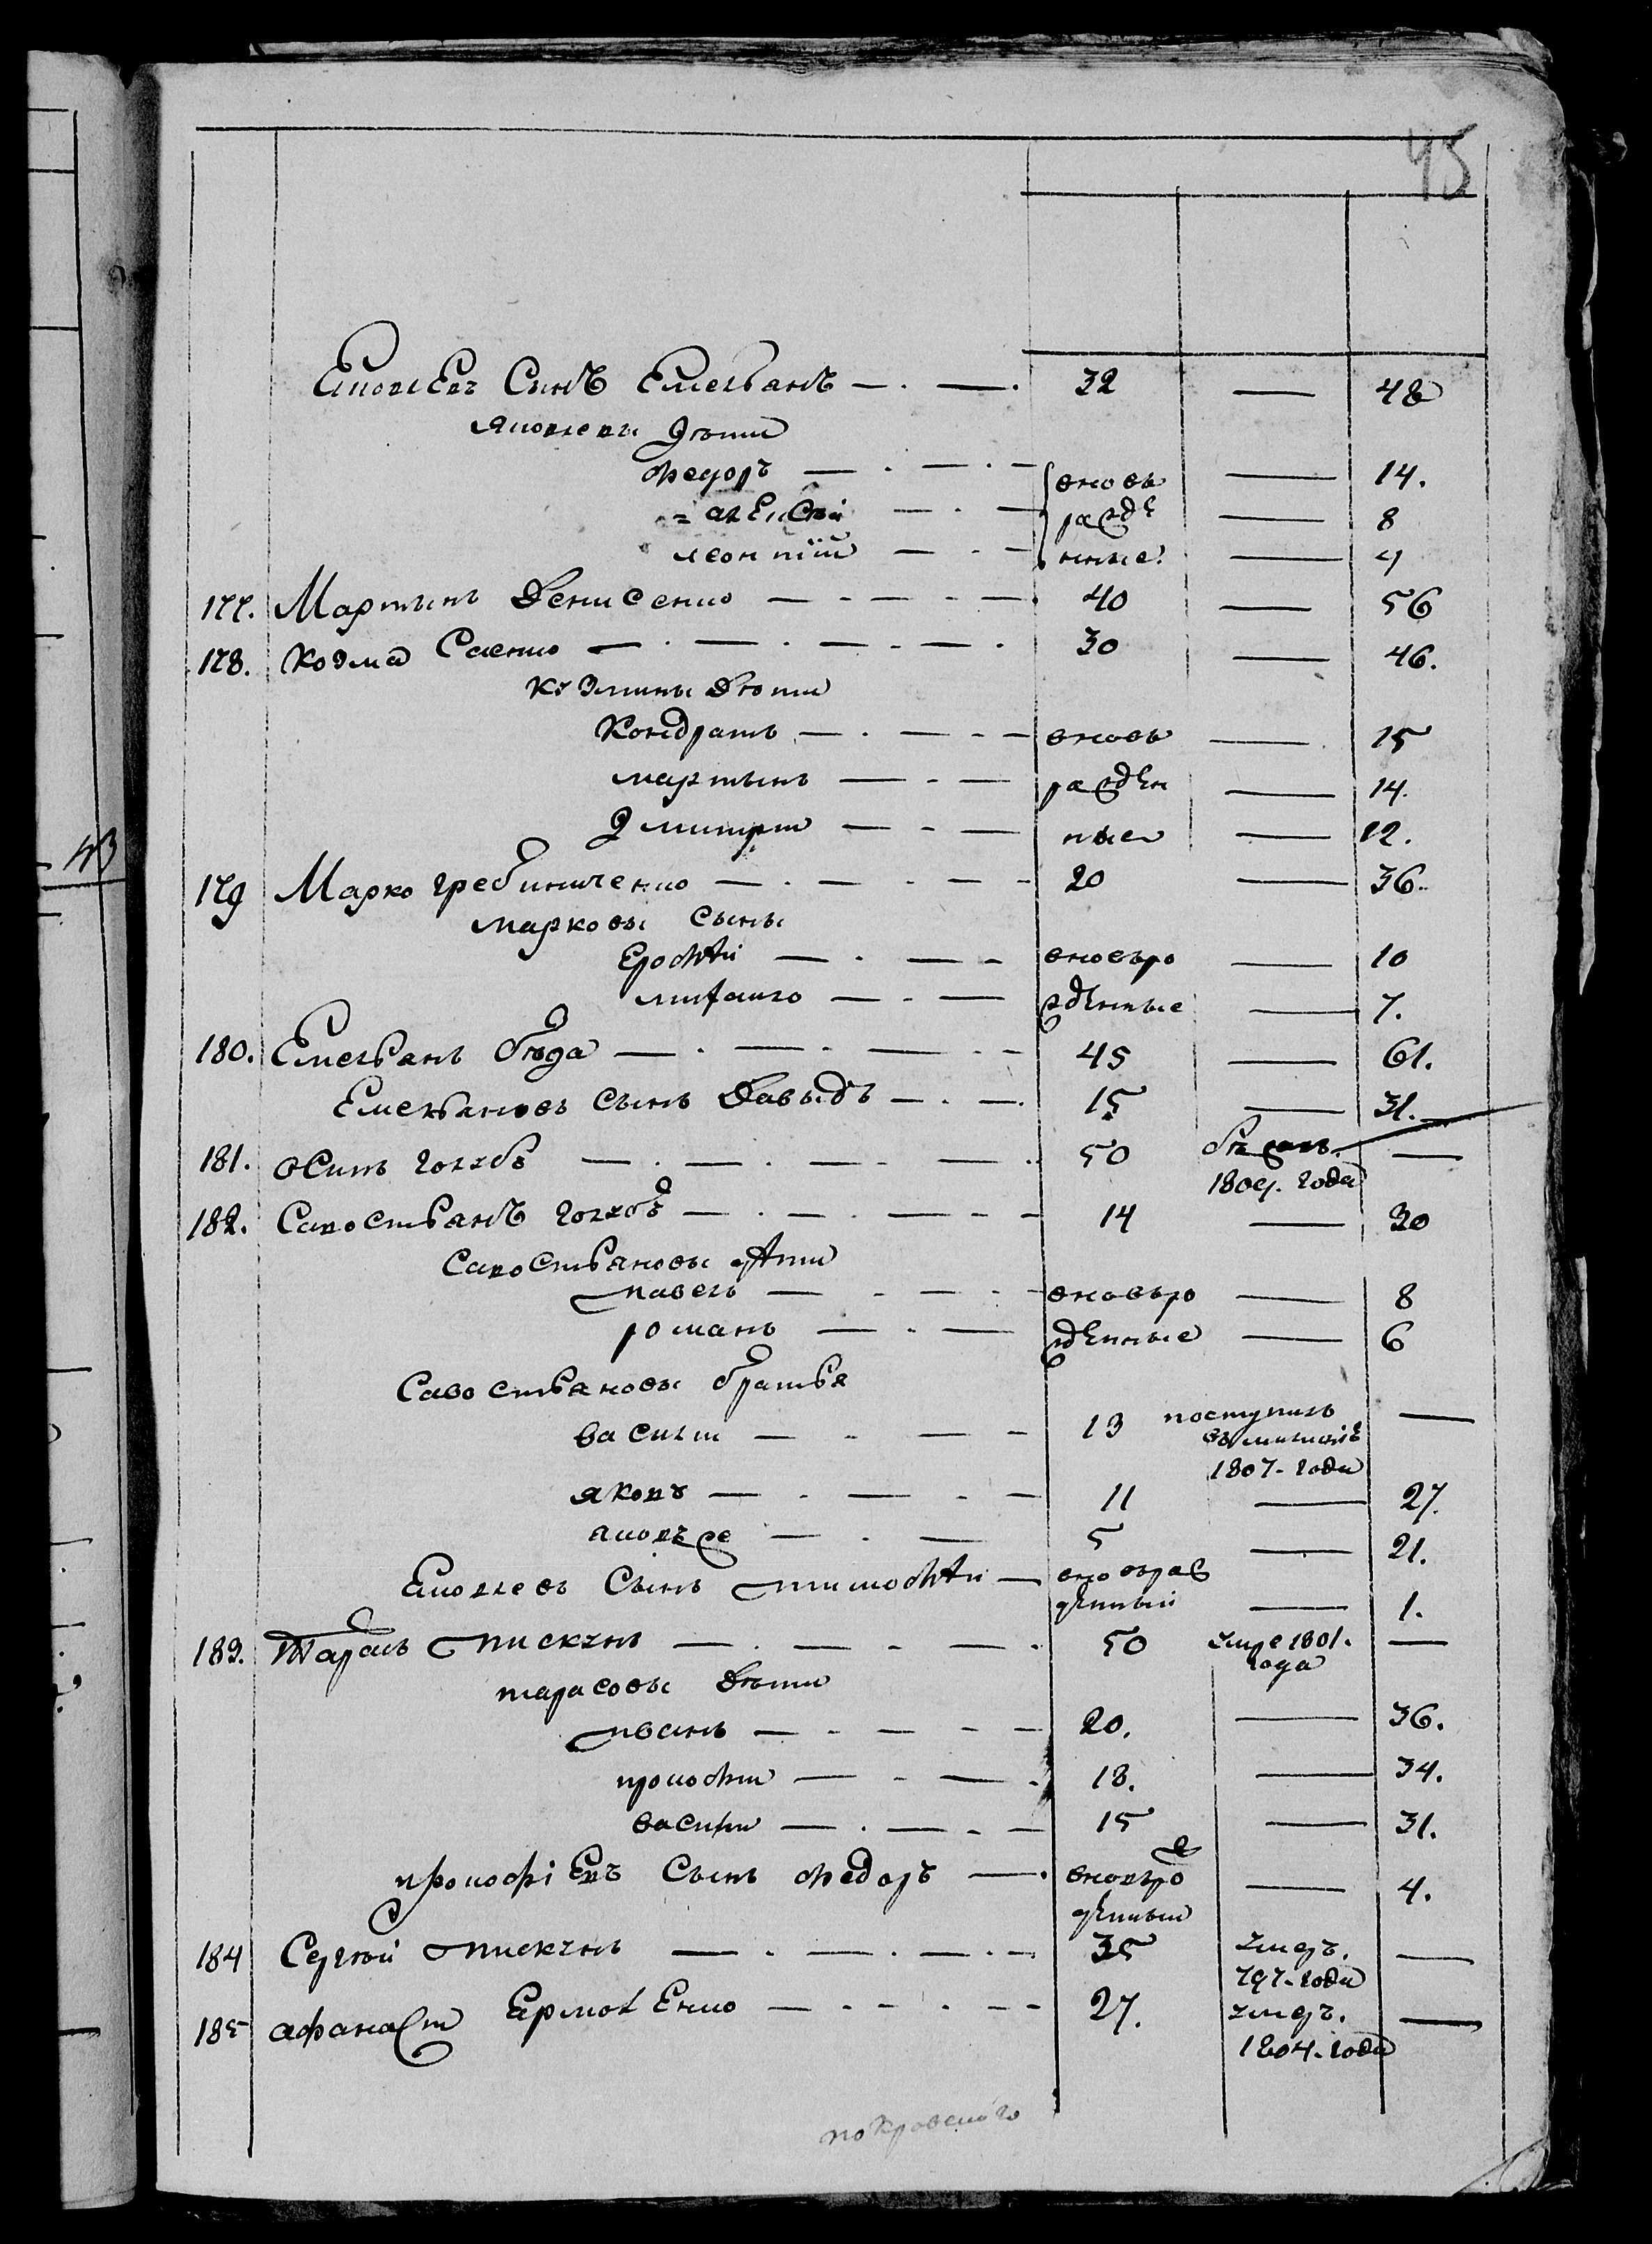 45
Яковлевъ Синъ Емельянъ 32 — 48
Яковлевы дѣти
Федоръ вновь — 14.
Алексѣй рожде — 8
Леонтій нные. — 4
177. Мартынъ Денисенко 40 — 56
178. Козма Саенко 30 — 46.
Козмины Дѣти
Кондратъ вновь — 15
мартынъ рожден — 14.
Дмитри ные — 12.
179 Марко гребиниченко 20 — 36.
марковы сыны
Ерофѣй вновьро — 10
жденные — 7.
180. Емельянъ бѣда 45 — 61.
Емельяновъ сынъ Давыдъ 15 — 31.
181. осипъ голубъ 50 бѣжалъ. —
1809. года
182. Савостьянъ голубъ 14 — 30
Савостьяновы дѣти
павелъ вновьро — 8
романъ жденные — 6
Савостьяновы братья
василий 13 поступилъ —
въ милицию
1807. года
яковъ 11 — 27.
яковъ же 5 — 21.
Яковлевъ Сынъ тимофѣй вновьрож
денный — 1.
183. Тарасъ пискунъ 50 умре 1801. —
года
тарасовы Дѣти
иванъ 20. — 36.
прокофи 18. — 34.
васили 15 — 31.
прокофіевъ Сынъ федоръ вновьрож
денный — 4.
184 Сергѣй пискунъ 35 умеръ. —
797. года
185 афанаси Ермоленко 27. умеръ. —
1804. года
покровского
43